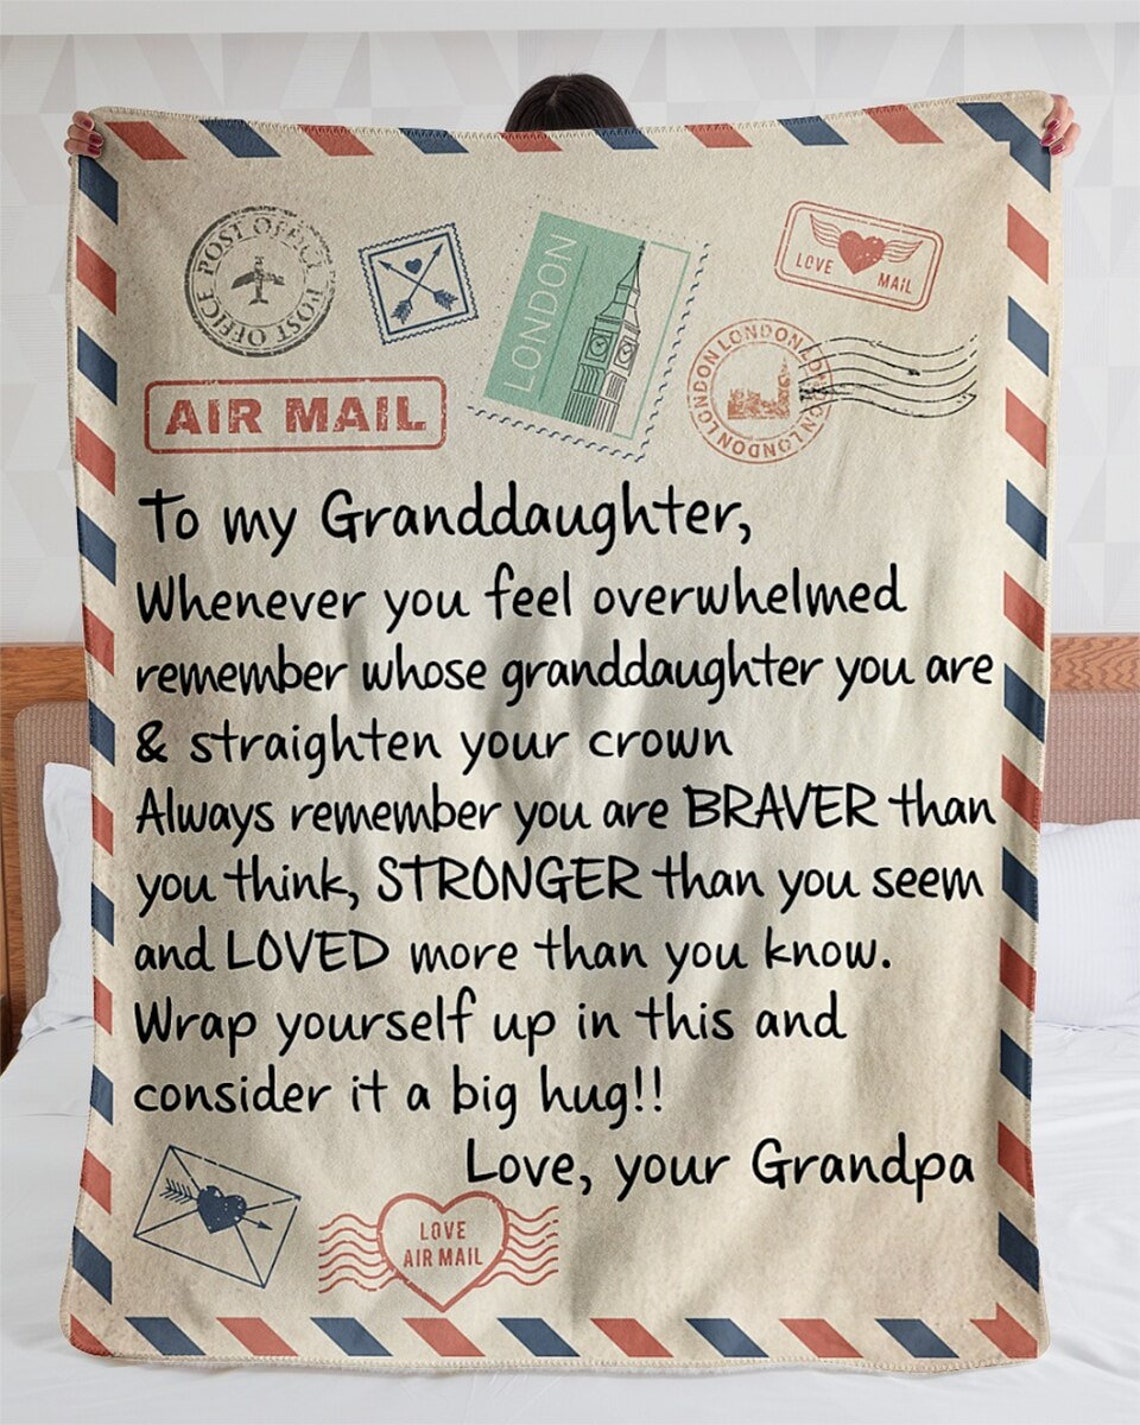 POST OFFICE POST OFFICE
LONDON
LOVE
MAIL
LONDON LONDON LONDON LONDON
AIR MAIL
To my Granddaughter,
Whenever you feel overwhelmed
remember whose granddaughter you are
& straighten your crown
Always remember you are BRAVER than
you think, STRONGER than you seem
and LOVED more than you know.
Wrap yourself up in this and
consider it a big hug!!
Love, your Grandpa
LOVE
AIR MAIL